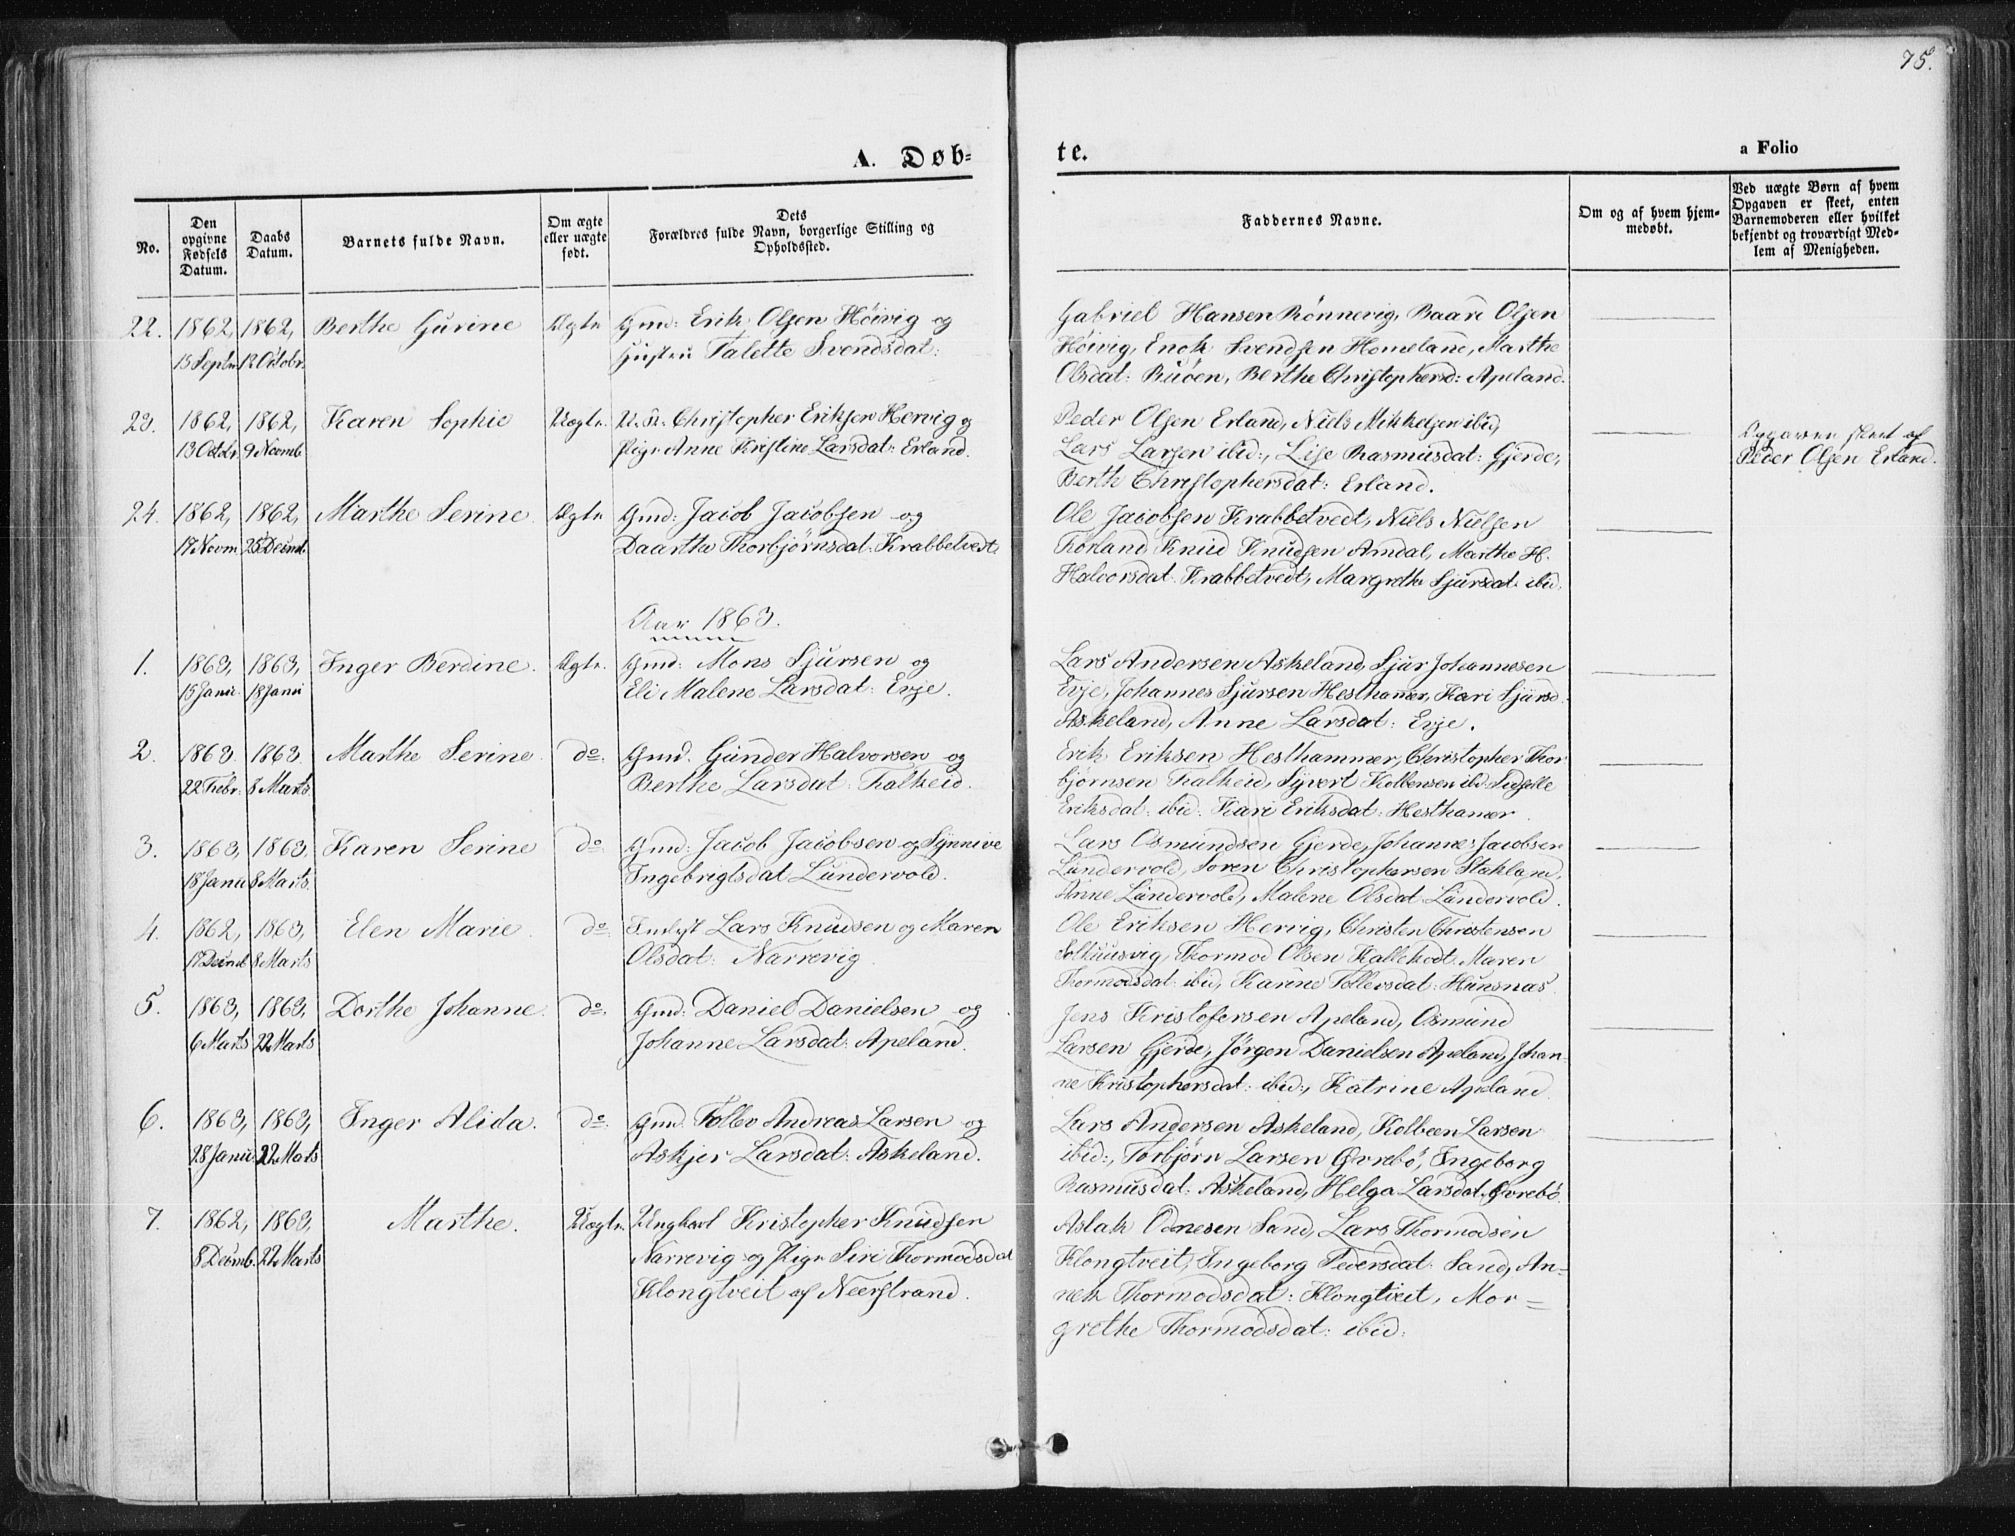 75.
A. Døb=
te.
a Folio
No.
Den opgivne Fødsels Datum.
Daabs Datum.
Barnets fulde Navn.
Om ægte eller uægte født.
Dets Forældres fulde Navn, borgerlige Stilling og Opholdssted.
Faddernes Navne.
Om og af hvem hjem-medøbt.
Ved uægte Børn af hvem Opgaven er skeet, enten Barnemoderen eller hvilket bekjendt og troværdigt Med-lem af Menigheden.
22. 1862, 1862, Berthe Gurine Ægte Gmd: Erik Olsen Höivig og
15 Septr. 12 Octobr. Hustru Talette Svendsdat:
Gabriel Hansen Rönnevig, Baard Olsen
Höivig, Enok Svendsen Homeland, Marthe
Olsdat: Buöen, Berthe Christophersd: Apeland.
23. 1862, 1862, Karen Sophie Uægte. Christopher Eriksen Hervig og
13 Octbr. 9 Novemb. Pige Anne Kristine Larsdat: Erland.
Peder Olsen Erland, Niels Mikkelsen ibid,
Lars Larsen ibid:, Lise Rasmusdat: Gjerde,
Berth Christophersdat: Erland.
Opgaven skeet af
Peder Olsen Erland.
24. 1862, 1862, Marthe Serine. Ægte Gmd: Jacob Jacobsen og
17 Novm. 25 Decmb. Daarthe Thorbjörnsdat: Krabbetvedt.
Ole Jacobsen Krabbetvedt, Niels Nielsen
Törland Knud Knudsen Amdal, Marthe H.
Halvorsdat: Krabbetvedt, Margrethe Sjursdat ibid.
Aar 1863.
1. 1863, 1863, Inger Berdine. Ægte. Gmd: Mons Sjursen og
15 Janu. 18 Janu Eli Malene Larsdat: Evje.
Lars Andersen Askeland, Sjur Johannesen
Evje, Johannes Sjursen Hesthamer, Kari Sjursd:
Askeland, Anne Larsdat: Evje.
2. 1863. 1863. Marthe Serine. do. Gmd. Gunder Halvorsen og
22 Febr: 8 Marts. Berthe Larsdat: Falkeid.
Erik Eriksen Hesthammer, Christopher Thor
björnsen Falkeid, Syvert Kolbensen ibid. Sidselle
Eriksdat: ibid: Kari Eriksdat: Hesthamer.
3. 1863, 1863, Karen Serine do. Gmd: Jacob Jacobsen og Synnive
18 Janu 8 Marts. Ingebrigtsdat Lundervold.
Lars Osmundsen Gjerde, Johannes Jacobsen
Lundervold, Soren Christophersen Stakland,
Anne Lundervold, Malene Olsdat Lundervold.
4. 1862, 1863, Elen Marie. do. Lars Knudsen og Maren
17 Decmb 8 Marts Olsdat: Narrevig.
Ole Eriksen Hervig, Christen Christensen
Thormod Olsen Maren
Thormodsdat: ibid, Karine Tollevsdat: Hunsnas.
5. 1863, 1863, Dorthe Johanne. do. Gmd: Daniel Danielsen og
6 Marts 22 Marts Johanne Larsdat: Apeland.
Jens Kristofersen Apeland, Osmund
Larsen Gjerde, Jörgen Danielsen Apeland, Johan-
ne Kristophersdat: ibid:, Katrine Apeland.
6. 1863, 1863, Inger Alida. do. Gmd. Tollev Andreas Larsen og
28 Janu. 22 Marts Askjer Larsdat: Askeland.
Lars Andersen Askeland, Kolbeen Larsen
ibid:, Torbjörn Larsen Øvrebö, Ingeborg
Rasmusdat: Askeland, Helga Larsdat. Øvrebö.
7. 1862, 1863, Marthe. Uægte. Ungkarl Kristopher Knudsen
8 Decemb. 22 Marts Narrevig og Pige Siri Thormodsdat
Klongtveit af Neerstrand.
Aslak Odnesen Sand, Lars Thormodsen
Klongtveit, Ingeborg Pedersdat: Sand, An-
nek Thormodsdat: Klongtveit, Mar=
grethe Thormodsdat: ibid: